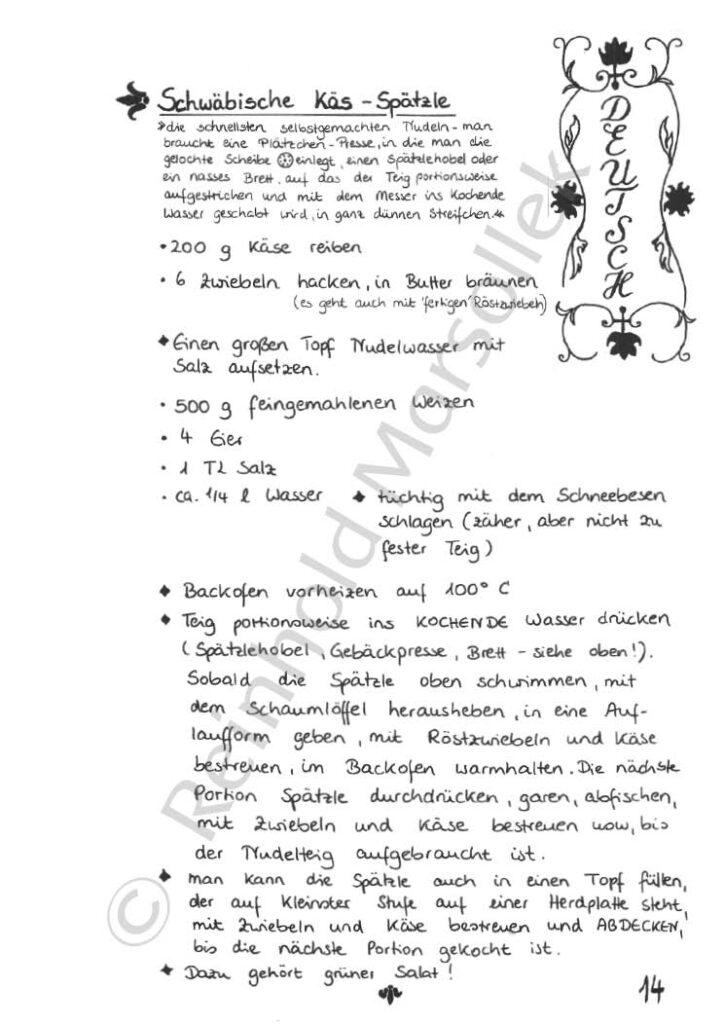 Schwäbische Käs - Spätzle
die schnellsten selbstgemachten Nudeln - man
braucht eine Plätzchen - Presse, in die man die
gelochte Scheibe einlegt, einen Spätzlehobel oder
ein nasses Brett, auf das der Teig portionsweise
aufgestrichen und mit dem Messer ins kochende
Wasser geschabt wird, in ganz dünnen Streifchen.
DEUTSCH
• 200 g Käse reiben
• 6 Zwiebeln hacken, in Butter bräunen
(es geht auch mit 'fertigen' Röstzwiebeln)
Einen großen Topf Nudelwasser mit
Salz aufsetzen.
• 500 g feingemahlenen Weizen
• 4 Eier
• 1 TL Salz
• ca. 1/4 l Wasser
tüchtig mit dem Schneebesen
schlagen (zäher, aber nicht zu
fester Teig)
Backofen vorheizen auf 100° C
Teig portionsweise ins KOCHENDE Wasser drücken
(Spätzlehobel, Gebäckpresse, Brett - siehe oben!).
Sobald die Spätzle oben schwimmen, mit
dem Schaumlöffel herausheben, in eine Auf-
laufform geben, mit Röstzwiebeln und Käse
bestreuen, im Backofen warmhalten. Die nächste
Portion Spätzle durchdrücken, garen, abfischen,
mit Zwiebeln und Käse bestreuen usw, bis
der Nudelteig aufgebraucht ist.
man kann die Spätzle auch in einen Topf füllen,
der auf kleinster Stufe auf einer Herdplatte steht,
mit Zwiebeln und Käse bestreuen und ABDECKEN,
bis die nächste Portion gekocht ist.
Dazu gehört grüner Salat!
14
© Reinhold Marsollek